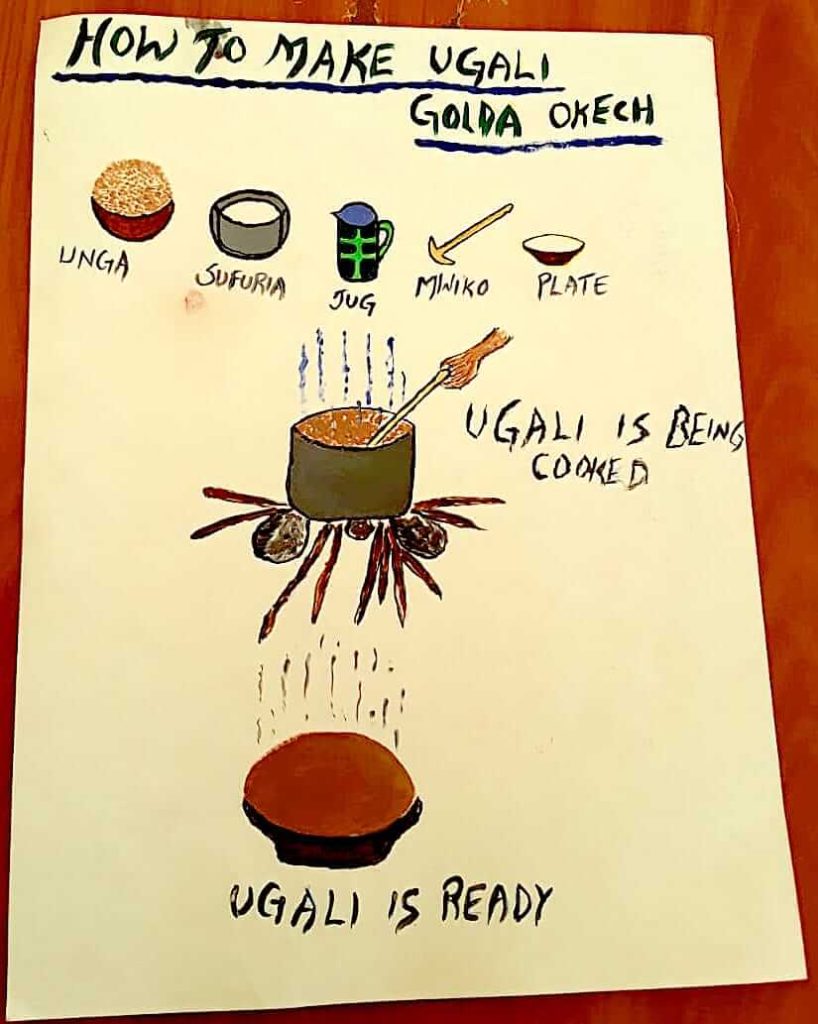 HOW TO MAKE UGALI
GOLDA OKECH
UNGA
SUFURIA
JUG
MWIKO
PLATE
UGALI IS BEING
COOKED
UGALI IS READY